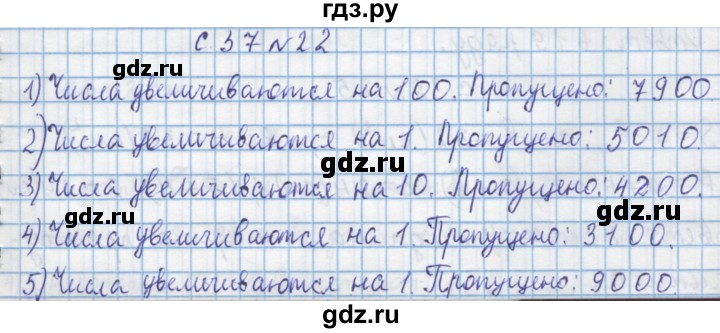 гдз.ру
с. 37 № 22
1) Числа увеличиваются на 100. Пропущено: 7900
gdz.ru gdz.ru
2) Числа увеличиваются на 1. Пропущено: 5010.
gdz.ru
3) Числа увеличиваются на 10. Пропущено: 4200.
gdz.ru gdz.ru
4) Числа увеличиваются на 1. Пропущено: 3100.
5) Числа увеличиваются на 1. Пропущено: 9000.
gdz.ru